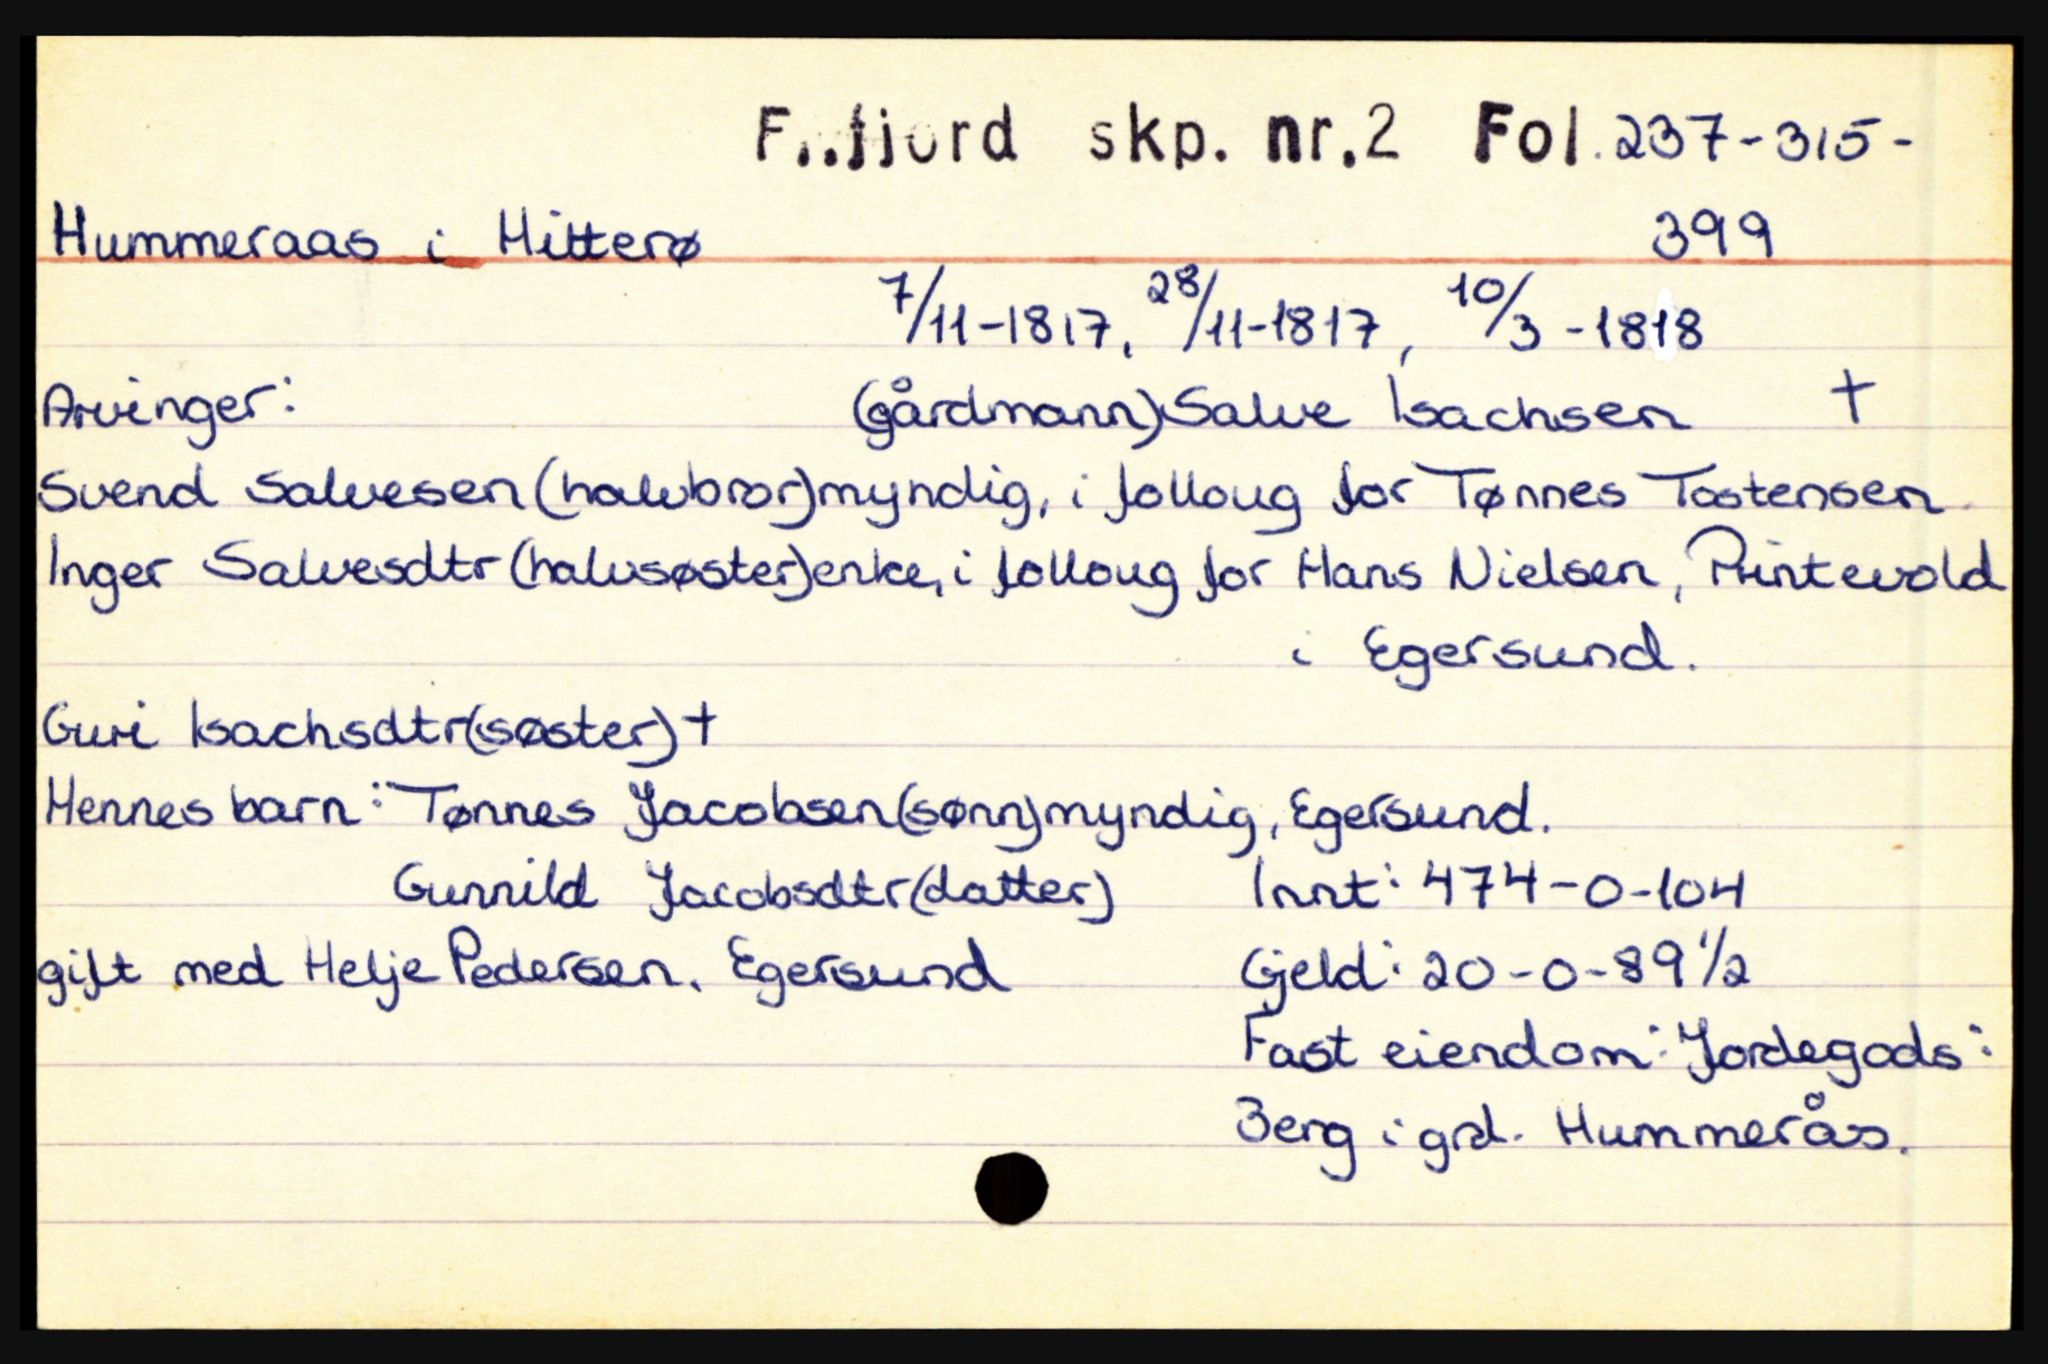 F..fjord skp. nr. 2 Fol. 237-315-
399
Hummeraas i Hitterø
7/11-1817, 28/11-1817, 10/3-1818
Arvinger: (gårdmann) Salve Isachsen †
Svend Salvesen (halvbror) myndig, i folloug for Tønnes Tostensen
Inger Salvesdtr (halvsøster) enke, i folloug for Hans Nielsen, Printevold
i Egersund.
Guri Isachsdtr (søster) †
Hennes barn: Tønnes Jacobsen (sønn) myndig, Egersund.
Gunnild Jacobsdtr (datter) Innt: 474-0-104
gift med Helje Pedersen. Egersund Gjeld: 20-0-89 1/2
Fast eiendom: Jordegods:
Berg i grd. Hummerås.